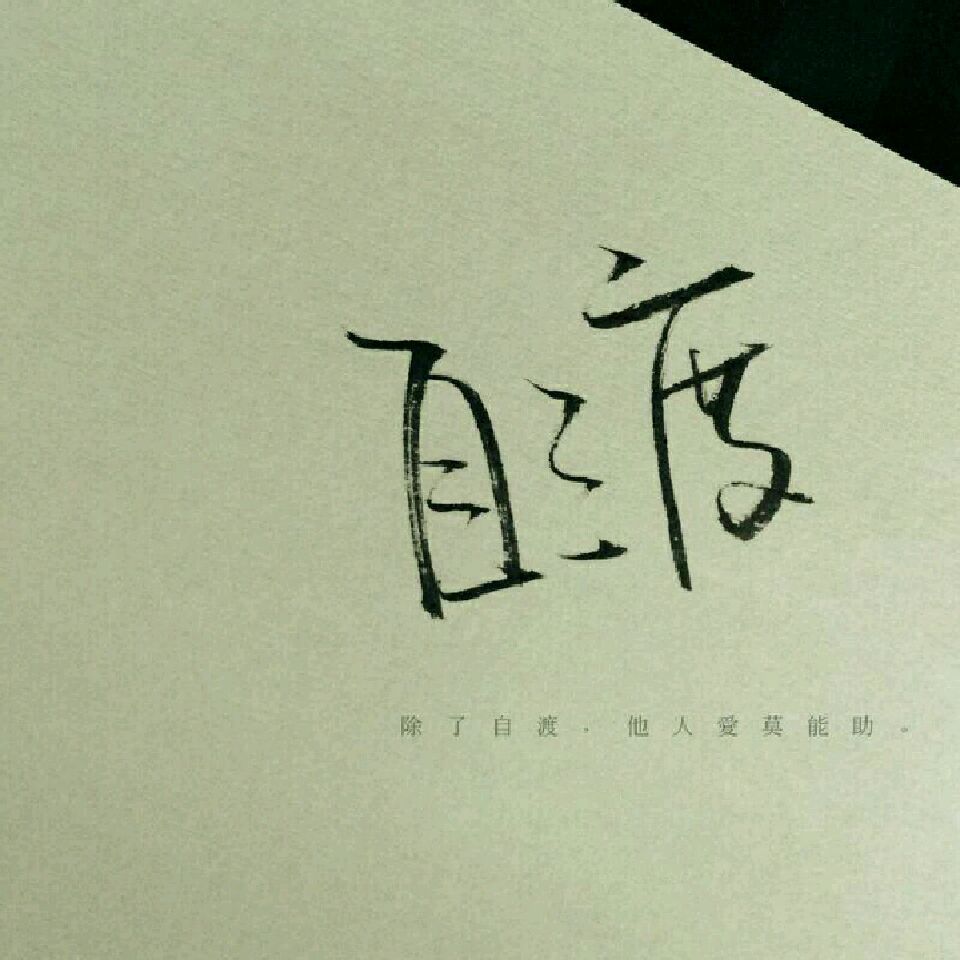 自渡
除了自渡，他人愛莫能助。